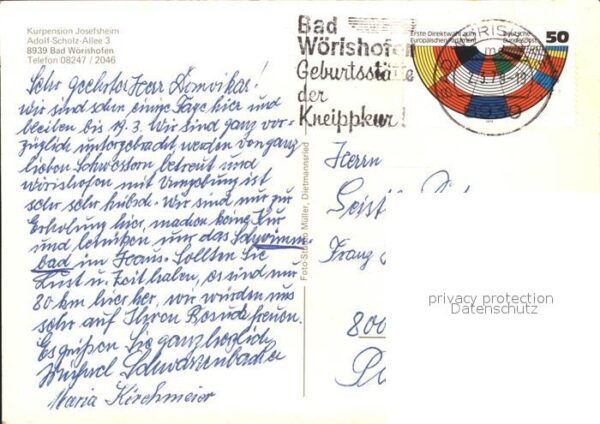 Kurpension Josefsheim
Adolf-Scholz-Allee 3
8939 Bad Wörishofen
Telefon 08247 / 2046
Sehr geehrter Herr
Wir sind schon einige Tage hier und
bleiben bis 19.3. Wir sind ganz vor-
züglich untergebracht, werden von ganz
lieben Schwestern betreut und
Wörishofen mit Umgebung ist
sehr sehr hübsch. Wir sind nur zur
Erholung hier, machen keine Kur
und benützen nur das Schwimm-
bad im Haus. Sollten Sie
Lust u. Zeit haben, es sind nur
80 km hier her, wir würden uns
sehr auf Ihren Besuch freuen.
Es grüßen Sie ganz herzlich
Schwarzenbacher
Maria Kirchmeier
Foto Studio Müller, Dietmannsried
Bad
Wörishofen
Geburtsstätte
der
Kneippkur!
Erste Direktwahl zum
Europäischen Parlament
Deutsche
Bundespost
50
8939
Herrn
Franz
800
privacy protection
Datenschutz